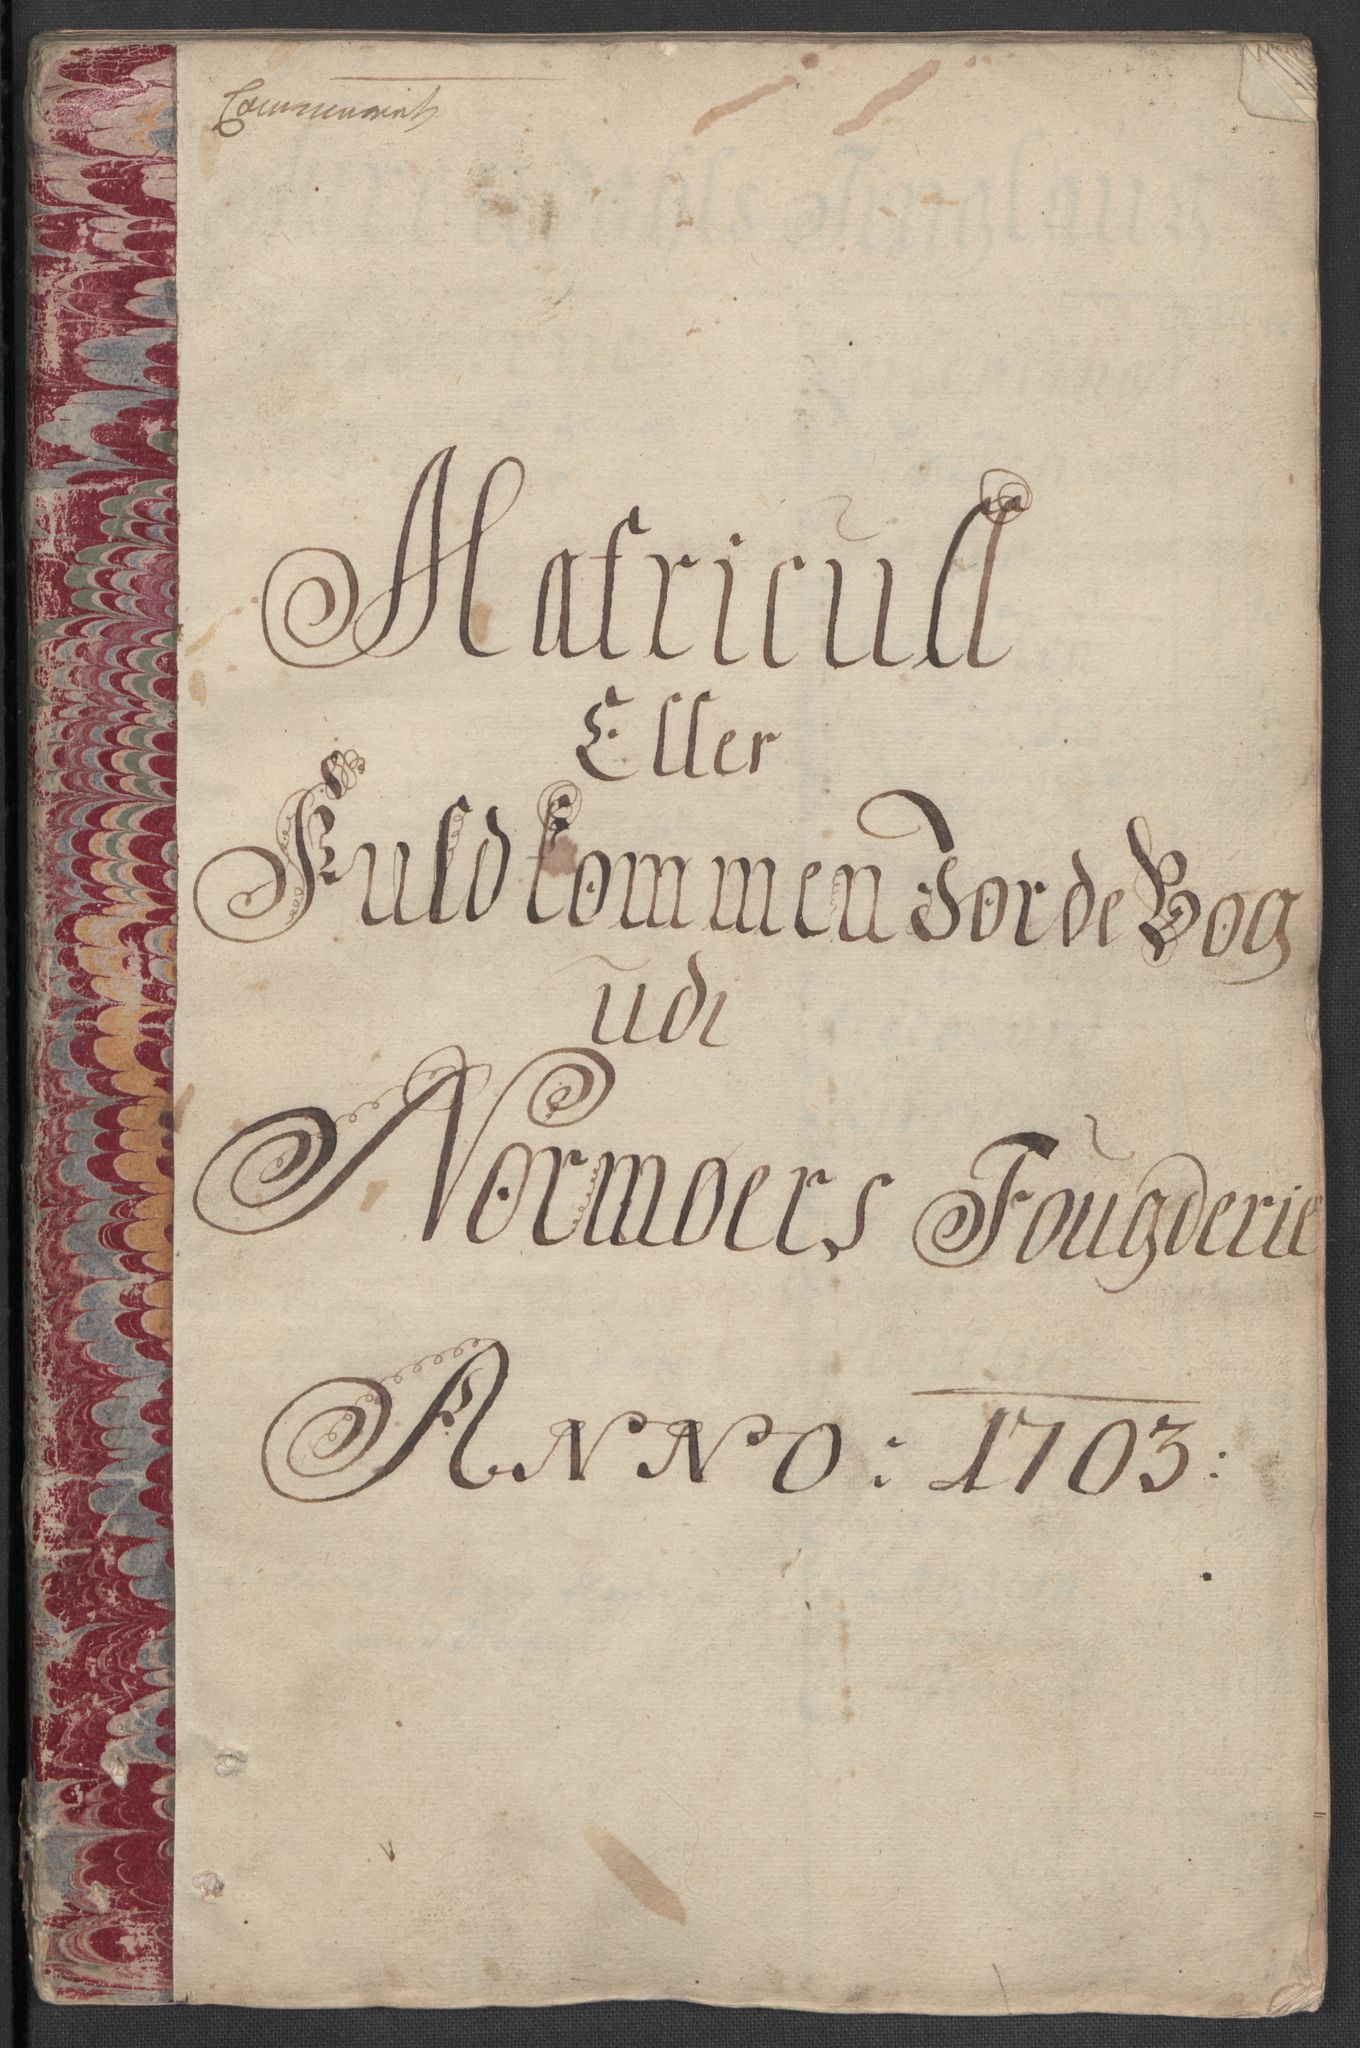 Matricull
Eller
Fuldkommen Jorde Bog
udi
Normoers Fougderie
ANNO: 1703: